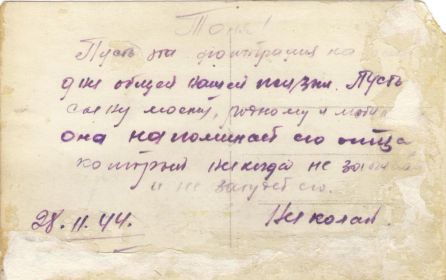 Тоня!
Пусть эта фотография на
дни общей нашей жизни. Пусть
сынку моему, родному и
она напоминает его отца
который никогда не
и не забудет его.
28.11.44. Николай.